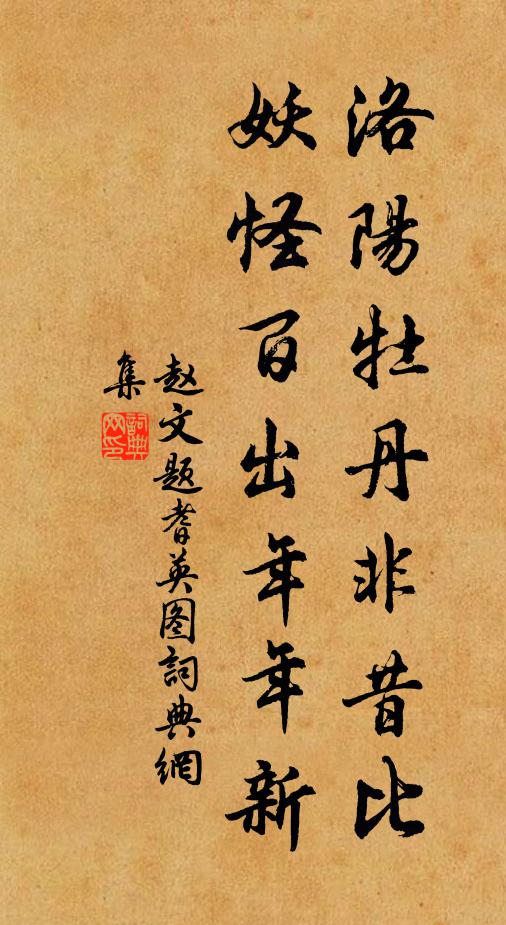 洛陽牡丹非昔比
妖怪百出年年新
赵文题耆英图詞典網
集
詞典網印